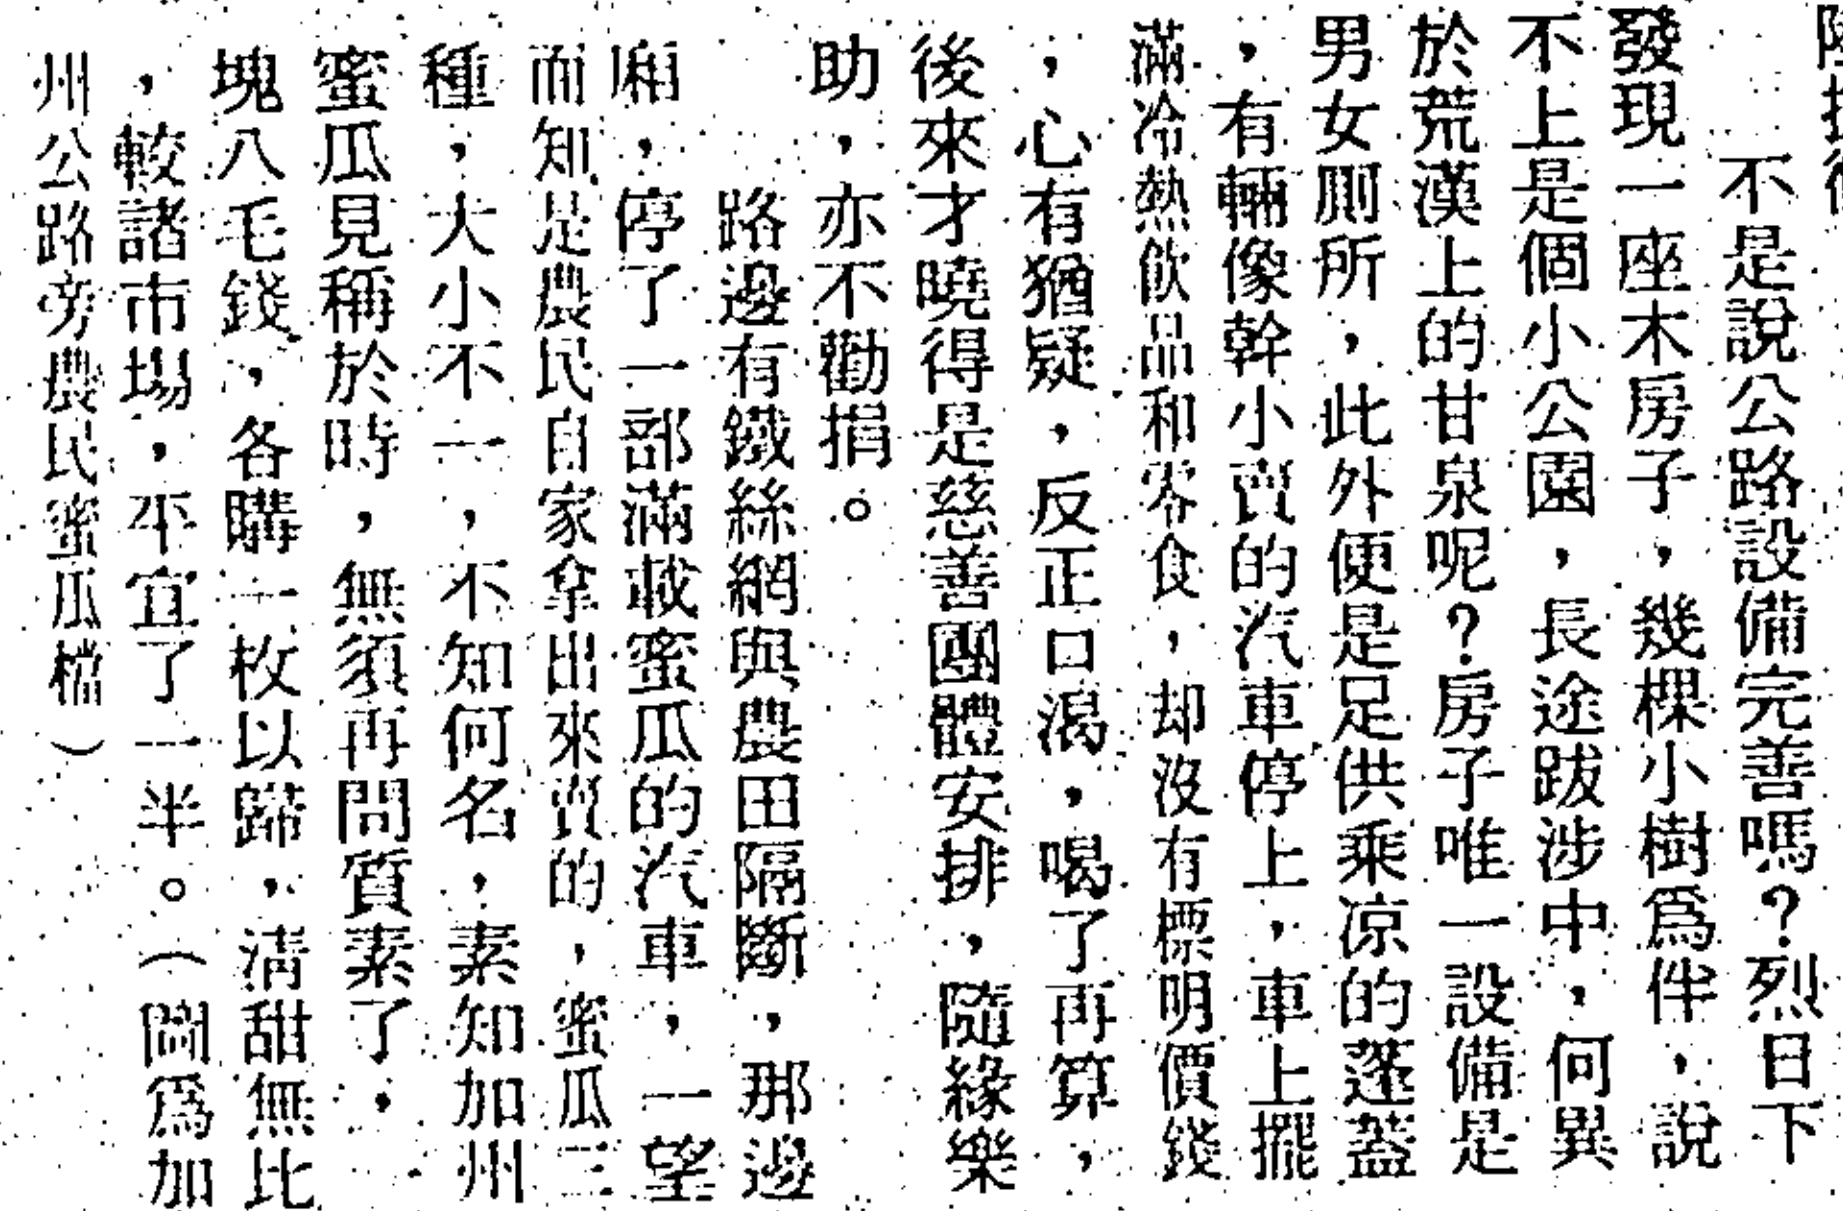 不是說公路設備完善嗎？烈日下
發現一座木房子，幾棵小樹爲伴，說
不上是個小公園，長途跋涉中，何異
於荒漢上的甘泉呢？房子唯一設備是
男女厠所，此外便是足供乘凉的蓬蓋
，有輛像幹小賣的汽車停上，車上擺
滿冷熱飲品和零食，却沒有標明價錢
，心有猶疑，反正口渴，喝了再算，
後來才曉得是慈善團體安排，隨緣樂
助，亦不勸捐。
路邊有鐵絲網與農田隔斷，那邊
廂，停了一部滿載蜜瓜的汽車，一望
而知是農民自家拿出來賣的，蜜瓜三
種，大小不一，不知何名，素知加州
蜜瓜見稱於時，無須再問質素了，
塊八毛錢，各購一枚以歸，清甜無比
，較諸市場，平宜了一半。（圖爲加
州公路旁農民蜜瓜檔）